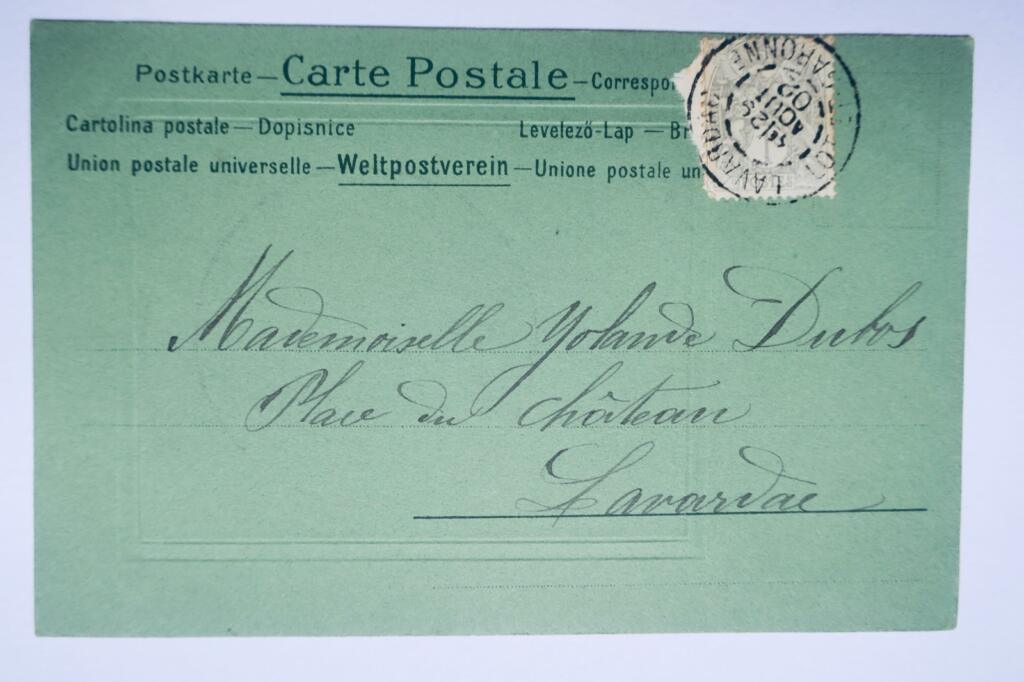 Postkarte — Carte Postale — Correspo
Cartolina postale — Dopisnice Levelező-Lap — Br
Union postale universelle — Weltpostverein — Unione postale un
LAVARDAC GARONNE
25 AOUT 02
Mademoiselle Yolande Dubos
Place du Château
Lavardac